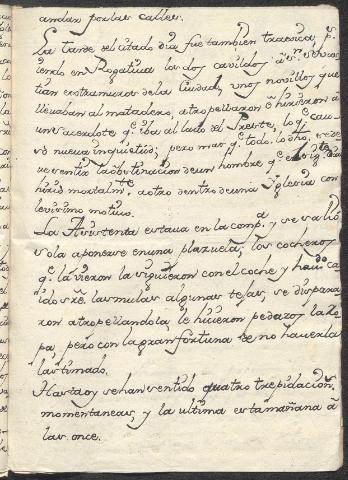 andar por las calles.
La tarde del citado dia fue tambien traxica, p.r
iendo en Rogativa los dos cavildos à S.n Sebas
tian extramuros de la Ciudad, unos novillos que
llevaban al matadero atropellaron è hirieron à
un sacerdote q.e iba al lado del Preste, lo q.e cau
só nueva inquietud; pero mas q.e todo lo dho, es de
ver sentir la obstinacion de un hombre q.e el sig.te dia
hirió mortalm.te a otro dentro de una Iglesia con
levisimo motivo.
La Asistenta estava en la camp.a y se salió
sola a ponerse en una plazuela, los cocheros
q.e la vieron la siguieron con el coche y haviendo ca
ido sre. las mulas algunas tejas, se dispara
ron atropellandola, le hicieron pedazos la Ro
pa pero con la gran fortuna de no haverla
lastimado.
Hasta oy se han sentido quatro trepidacion.s
momentaneas, y la ultima esta mañana à
las once.